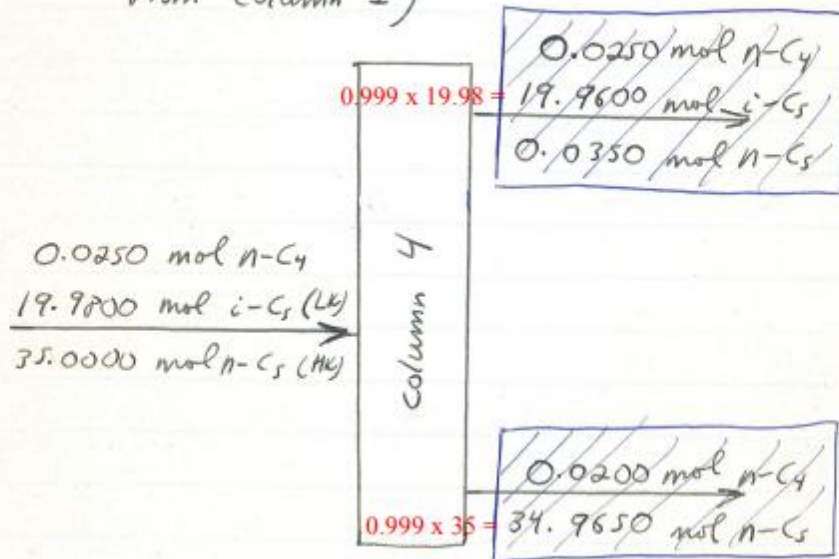 from column 1)
0.0250 mol n-C4
0.999 x 19.98 = 19.9600 mol i-C5
0.0350 mol n-C5
0.0250 mol n-C4
19.9800 mol i-C5 (LK)
35.0000 mol n-C5 (HK)
column 4
0.0200 mol n-C4
0.999 x 35 = 34.9650 mol n-C5